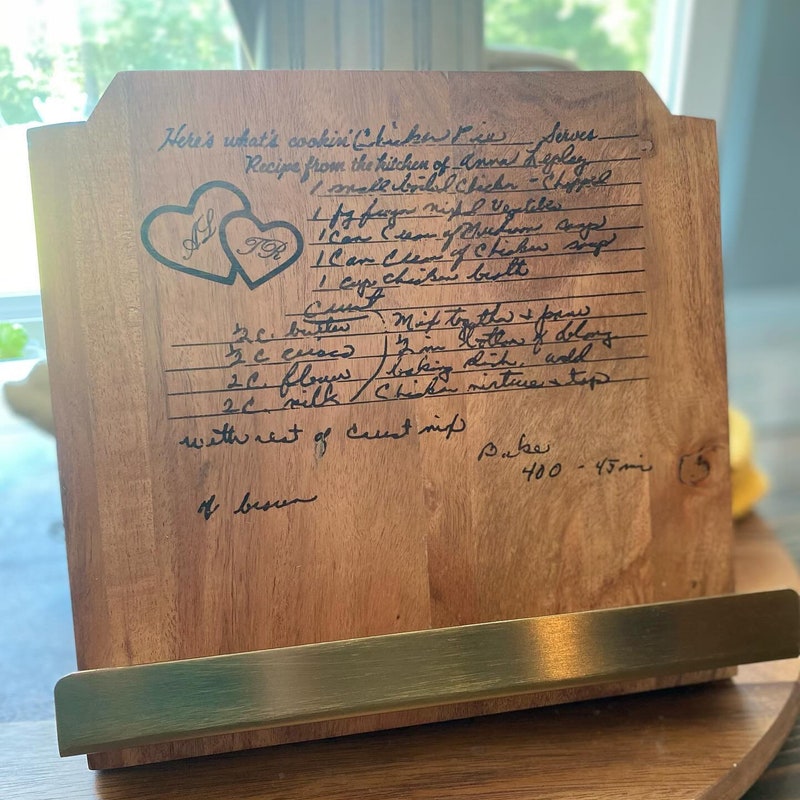 Here's what's cookin' Chicken Pie Serves
Recipe from the kitchen of Anna Lepley
1 small boiled Chicken - Chopped
AL
TR
1 pg frozen mixed Vegetables
1 Can Cream of Mushroom soup
1 Can Cream of Chicken soup
1 cup chicken broth
Crust
2 C. butter
2 C crisco
2 C. flour
2 C. milk
Mix together & pour
1/2 in bottom of oblong
baking dish. add
Chicken mixture & top
with rest of Crust mix
Bake
400 - 45 min
brown